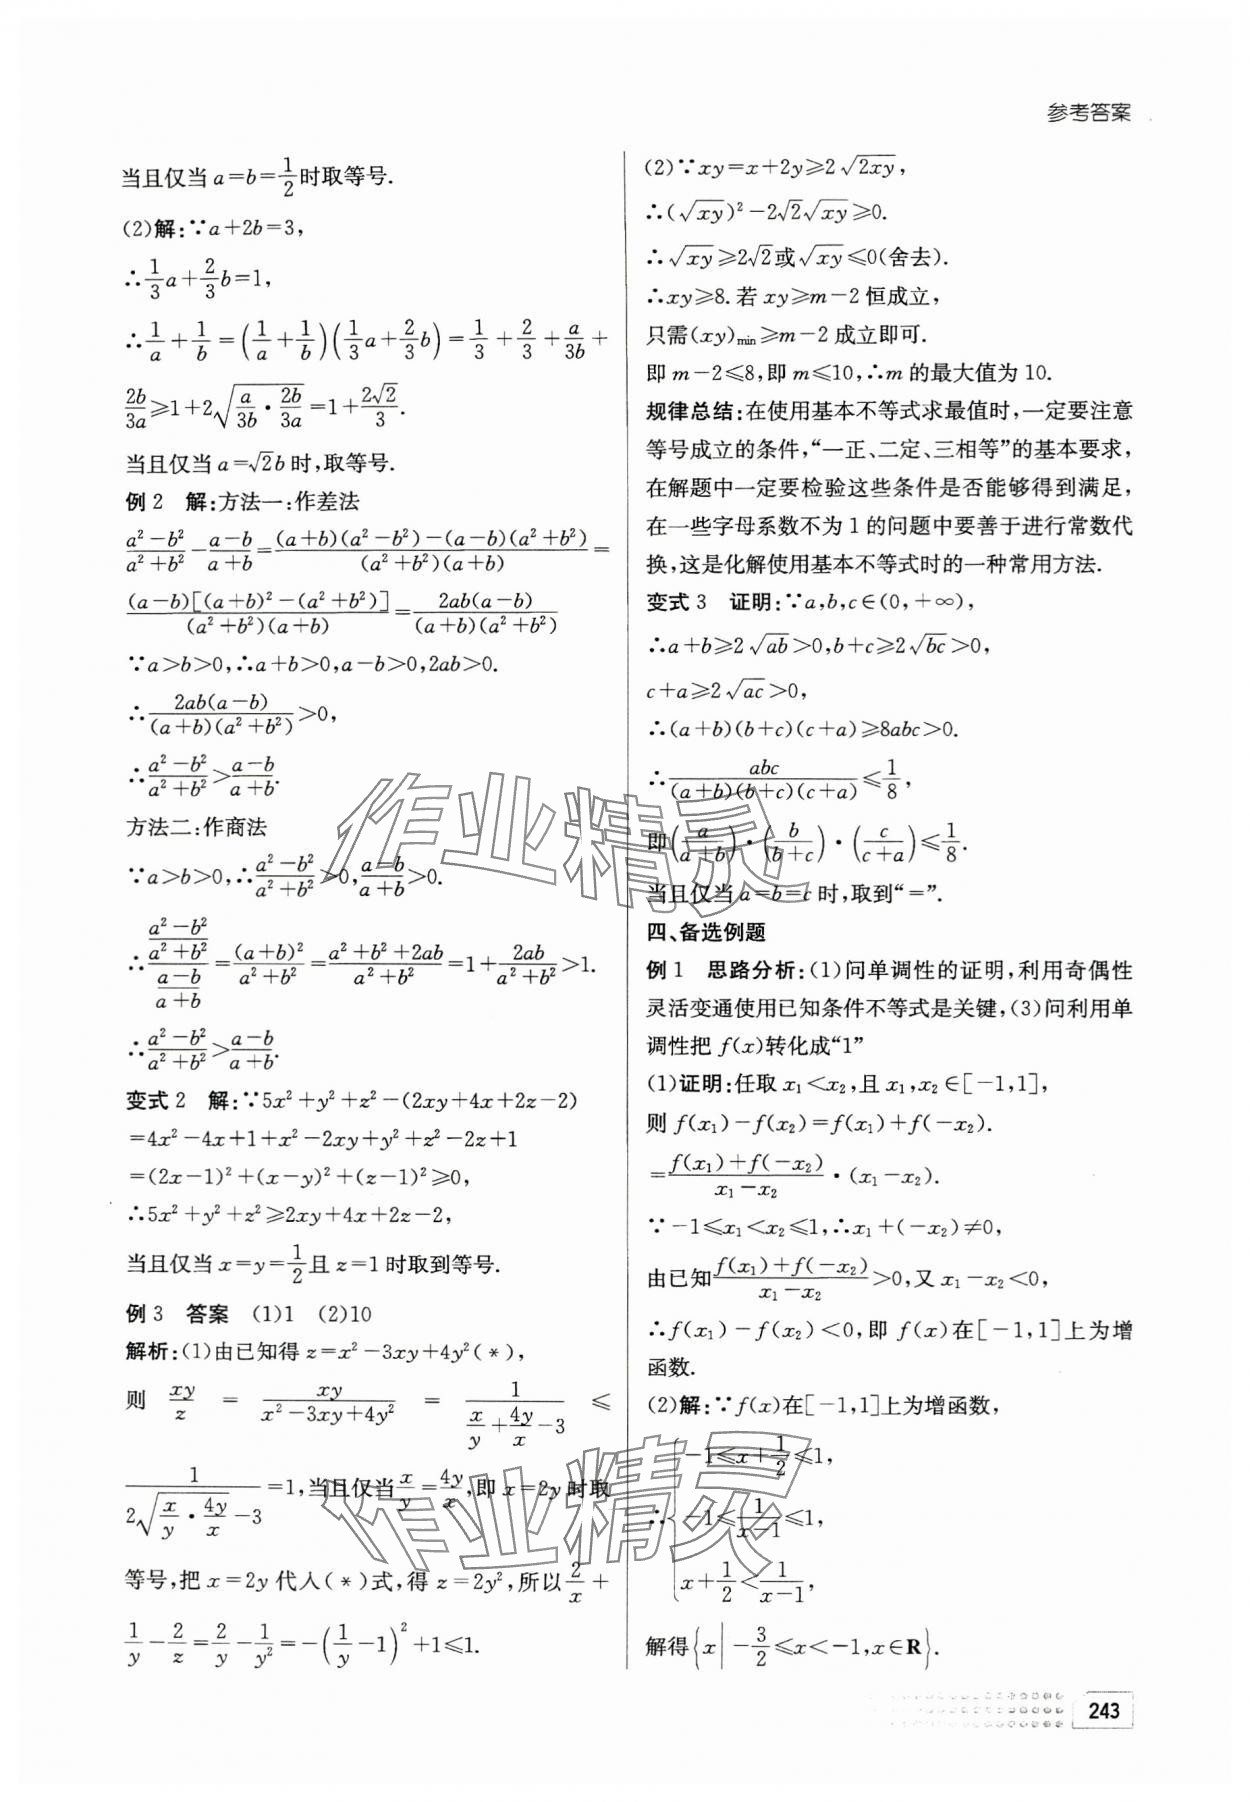 参考答案
当且仅当 a=b=\frac{1}{2}时取等号.
(2)解:∵a+2b=3,
∴\frac{1}{3}a+\frac{2}{3}b=1,
∴\frac{1}{a}+\frac{1}{b}=(\frac{1}{a}+\frac{1}{b})(\frac{1}{3}a+\frac{2}{3}b)=\frac{1}{3}+\frac{2}{3}+\frac{a}{3b}+
\frac{2b}{3a}≥1+2\sqrt{\frac{a}{3b}·\frac{2b}{3a}}=1+\frac{2\sqrt{2}}{3}.
当且仅当 a=\sqrt{2}b 时,取等号.
例 2 解:方法一:作差法
\frac{a²-b²}{a²+b²}-\frac{a-b}{a+b}=\frac{(a+b)(a²-b²)-(a-b)(a²+b²)}{(a²+b²)(a+b)}=
\frac{(a-b)[(a+b)²-(a²+b²)]}{(a²+b²)(a+b)}=\frac{2ab(a-b)}{(a+b)(a²+b²)}
∵a>b>0,∴a+b>0,a-b>0,2ab>0.
∴\frac{2ab(a-b)}{(a+b)(a²+b²)}>0,
∴\frac{a²-b²}{a²+b²}>\frac{a-b}{a+b}.
方法二:作商法
∵a>b>0,∴\frac{a²-b²}{a²+b²}>0,\frac{a-b}{a+b}>0.
∴\frac{\frac{a²-b²}{a²+b²}}{\frac{a-b}{a+b}}=\frac{(a+b)²}{a²+b²}=\frac{a²+b²+2ab}{a²+b²}=1+\frac{2ab}{a²+b²}>1.
∴\frac{a²-b²}{a²+b²}>\frac{a-b}{a+b}.
变式 2 解:∵5x²+y²+z²-(2xy+4x+2z-2)
=4x²-4x+1+x²-2xy+y²+z²-2z+1
=(2x-1)²+(x-y)²+(z-1)²≥0,
∴5x²+y²+z²≥2xy+4x+2z-2,
当且仅当 x=y=\frac{1}{2}且 z=1 时取到等号.
例 3 答案 (1)1 (2)10
解析:(1)由已知得 z=x²-3xy+4y²(*),
则 \frac{xy}{z} = \frac{xy}{x²-3xy+4y²} = \frac{1}{\frac{x}{y}+\frac{4y}{x}-3} ≤
\frac{1}{2\sqrt{\frac{x}{y}·\frac{4y}{x}}-3}=1,当且仅当\frac{x}{y}=\frac{4y}{x},即 x=2y 时取
等号,把 x=2y 代人(*)式,得 z=2y²,所以\frac{2}{x}+
\frac{1}{y}-\frac{2}{z}=\frac{2}{y}-\frac{1}{y²}=-(\frac{1}{y}-1)²+1≤1.
(2)∵xy=x+2y≥2\sqrt{2xy},
∴(\sqrt{xy})²-2\sqrt{2}\sqrt{xy}≥0.
∴\sqrt{xy}≥2\sqrt{2}或\sqrt{xy}≤0(舍去).
∴xy≥8.若 xy≥m-2 恒成立,
只需(xy)min≥m-2 成立即可.
即 m-2≤8,即 m≤10,∴m 的最大值为 10.
规律总结:在使用基本不等式求最值时,一定要注意
等号成立的条件,“一正、二定、三相等”的基本要求,
在解题中一定要检验这些条件是否能够得到满足,
在一些字母系数不为 1 的问题中要善于进行常数代
换,这是化解使用基本不等式时的一种常用方法.
变式 3 证明:∵a,b,c∈(0,+∞),
∴a+b≥2\sqrt{ab}>0,b+c≥2\sqrt{bc}>0,
c+a≥2\sqrt{ac}>0,
∴(a+b)(b+c)(c+a)≥8abc>0.
∴\frac{abc}{(a+b)(b+c)(c+a)}≤\frac{1}{8},
即(\frac{a}{a+b})·(\frac{b}{b+c})·(\frac{c}{c+a})≤\frac{1}{8}.
当且仅当 a=b=c 时,取到“=”.
四、备选例题
例 1 思路分析:(1)问单调性的证明,利用奇偶性
灵活变通使用已知条件不等式是关键,(3)问利用单
调性把 f(x)转化成“1”
(1)证明:任取 x₁<x₂,且 x₁,x₂∈[-1,1],
则 f(x₁)-f(x₂)=f(x₁)+f(-x₂).
=\frac{f(x₁)+f(-x₂)}{x₁-x₂}·(x₁-x₂).
∵-1≤x₁<x₂≤1,∴x₁+(-x₂)≠0,
由已知\frac{f(x₁)+f(-x₂)}{x₁-x₂}>0,又 x₁-x₂<0,
∴f(x₁)-f(x₂)<0,即 f(x)在[-1,1]上为增
函数.
(2)解:∵f(x)在[-1,1]上为增函数,
∴{-1≤x+\frac{1}{2}≤1,
-1≤\frac{1}{x-1}≤1,
x+\frac{1}{2}<\frac{1}{x-1},
解得{x|-\frac{3}{2}≤x<-1,x∈R}.
243
作业精灵
作业精灵